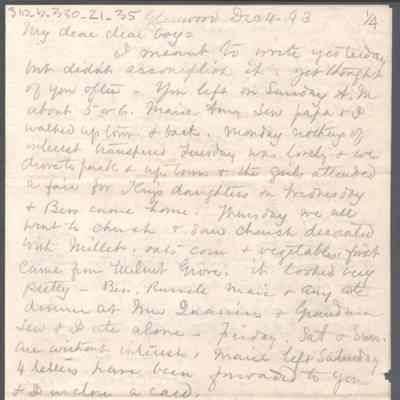 312-4-330-21-35 Glenwood Dec 4-93 1/4
My dear dear boys=
I meant to write yesterday
but didn't accomplish it. yet thought
of you often - You left on Sunday A.M
about 5 or 6. Maice Amy Lew papa & I
walked up town & back. Monday nothing of
interest transpired Tuesday was lovely & we
drove to park & up town & the girls attended
a fair for Kings daughters on Wednesday
& Bess came home. Thursday we all
went to church & saw church decorated
with Millets, oats corn & vegetables. fruit
came from Walnut Grove. it looked very
pretty - Ben. Maice & Amy ate
dinner at Mrs & Grandma
Lew & I ate alone - Friday, Sat & Sun.
are without interest, Maice left Saturday
4 letters have been forwarded to you
& I inclose a card.